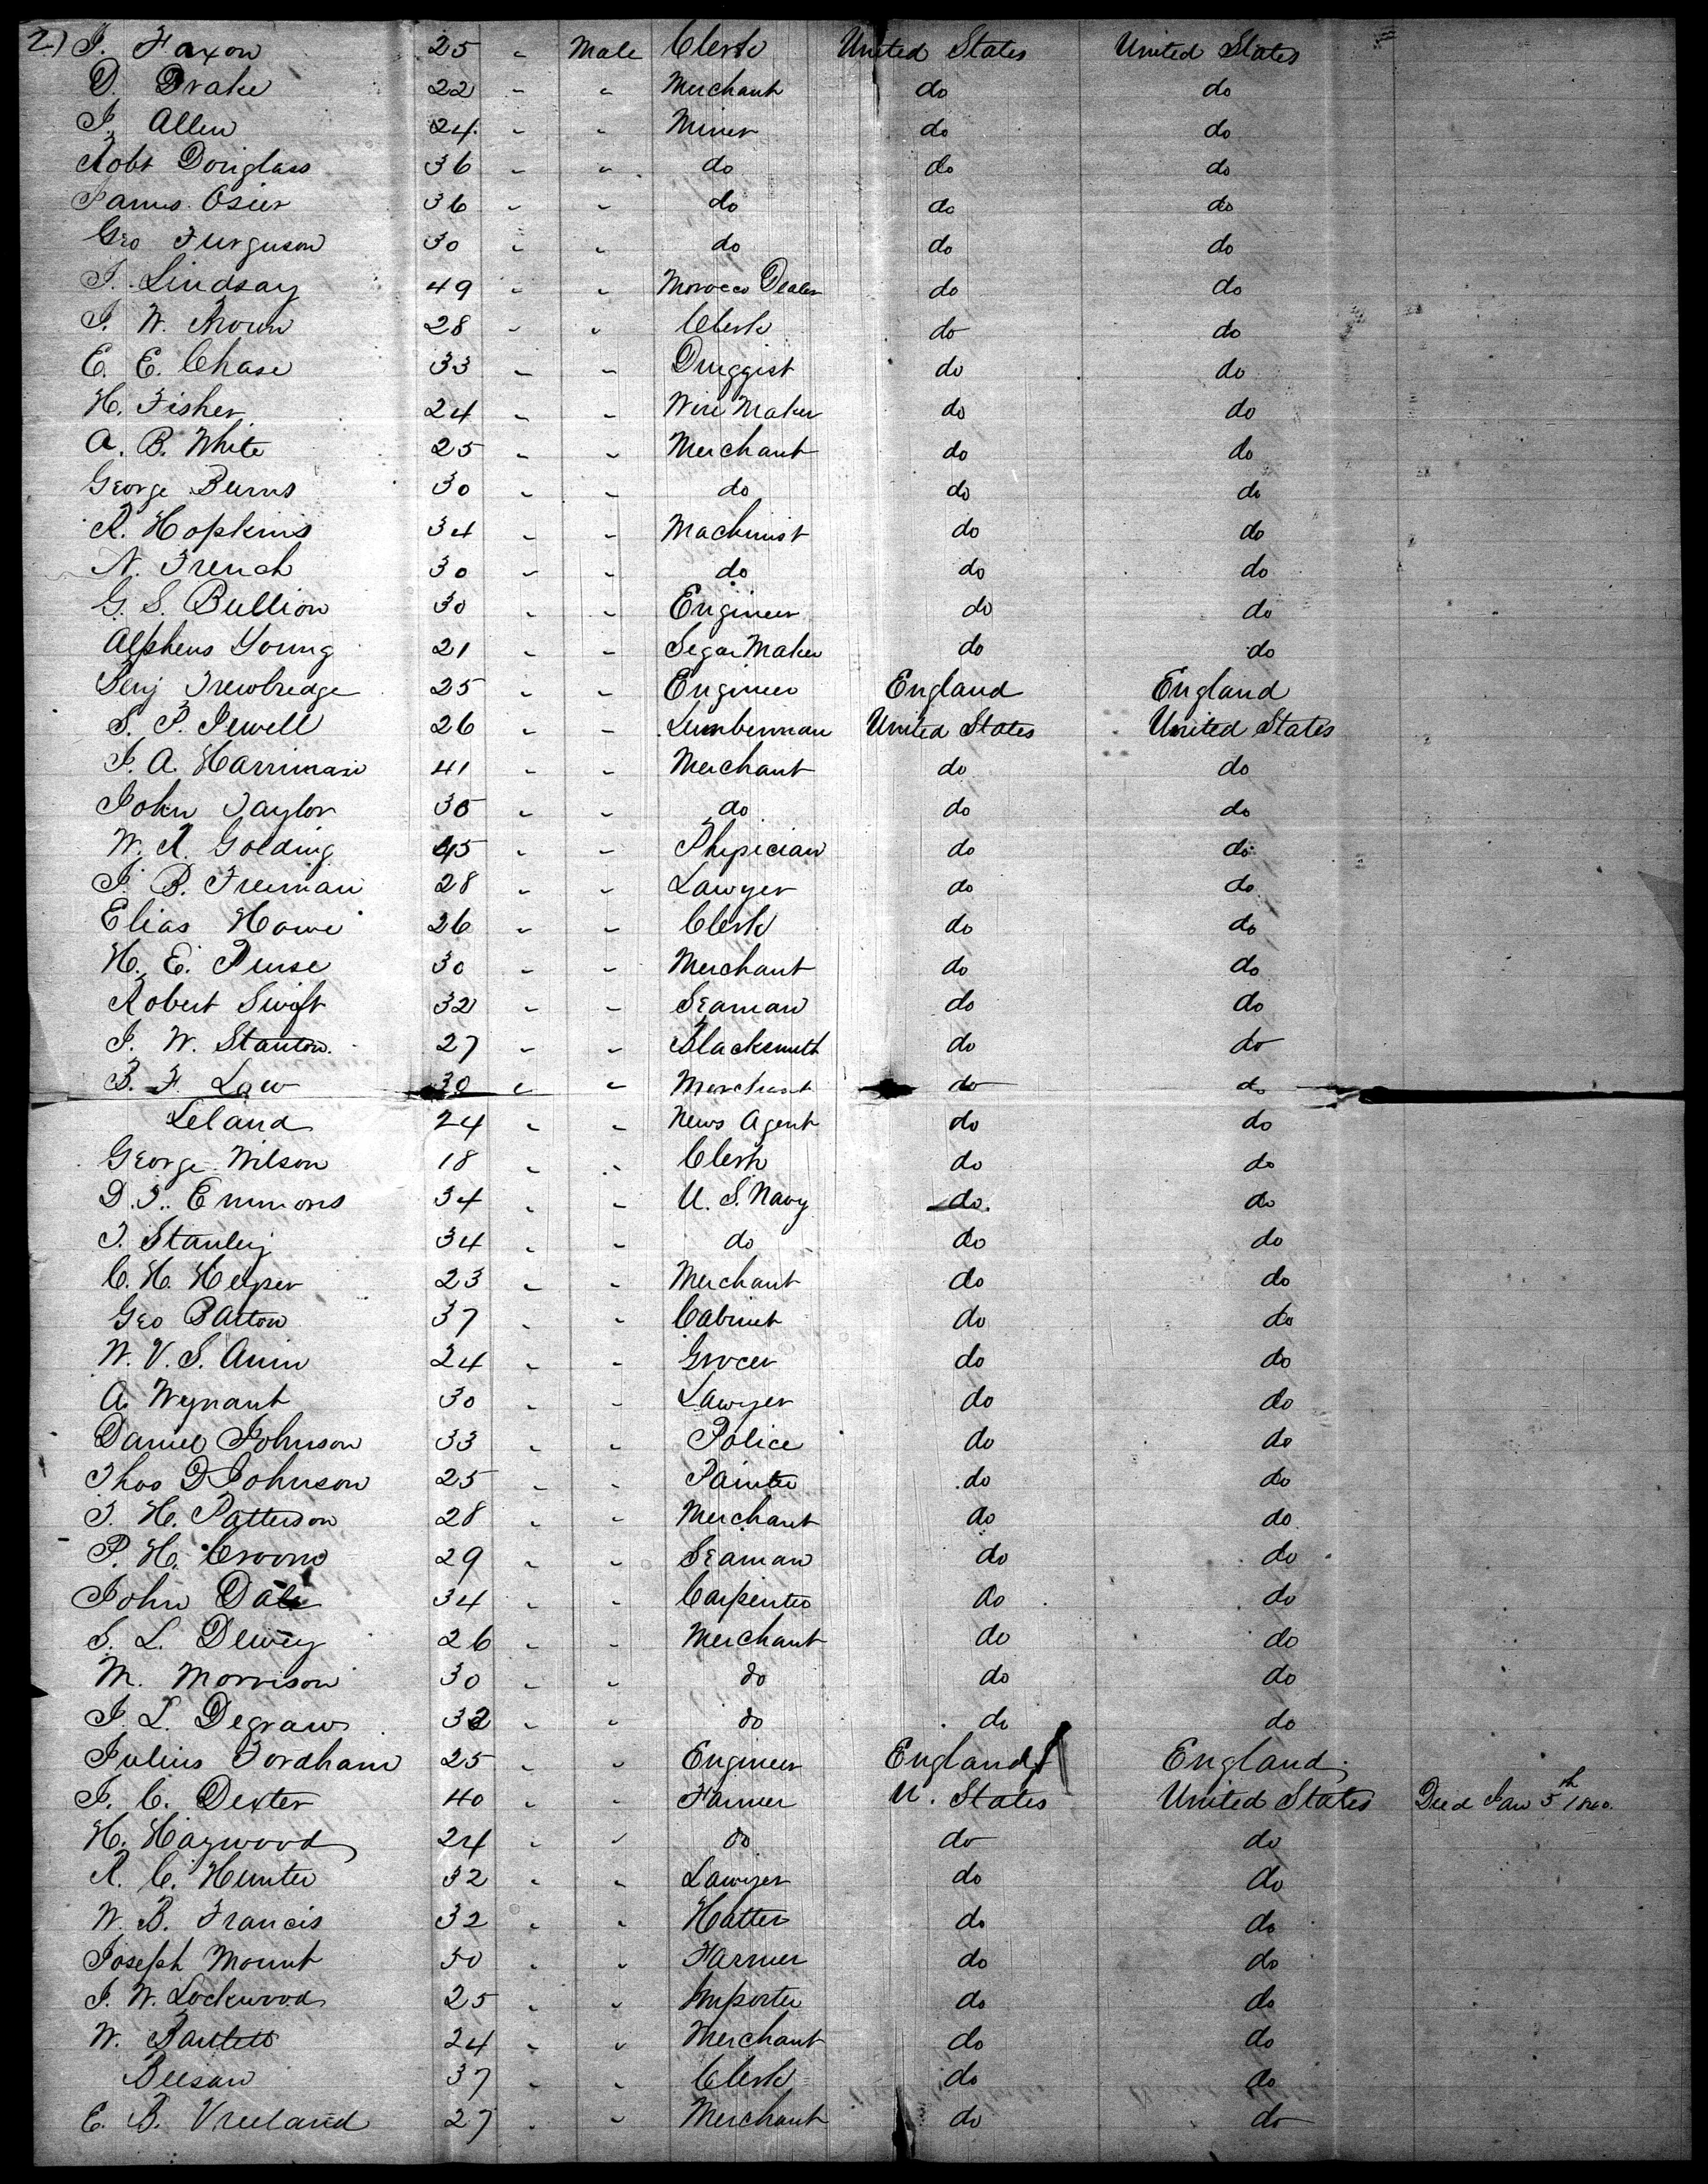 2) J. Faxon 25 " Male Clerk United States United States
D. Drake 22 " " Merchant do do
J. Allen 24 " " Miner do do
Robt Douglass 36 " " do do do
James Osier 36 " " do do do
Geo Furguson 30 " " do do do
J. Lindsay 49 " " Morocco Dealer do do
J. W. 28 " " Clerk do do
E. E. Chase 33 " " Druggist do do
H. Fisher 24 " " Wire Maker do do
A. B. White 25 " " Merchant do do
George Burns 30 " " do do do
R. Hopkins 34 " " Machinist do do
N. French 30 " " do do do
G. S. Bullion 30 " " Engineer do do
Alpheus Young 21 " " Segar Maker do do
Benj Trewbredge 25 " " Engineer England England
S. P. Jewell 26 " " Lumberman United States United States
J. A. Harriman 41 " " Merchant do do
John Taylor 35 " " do do do
W. R. Golding 45 " " Physician do do
J. B. Freeman 28 " " Lawyer do do
Elias Howe 26 " " Clerk do do
H. E. Peirse 30 " " Merchant do do
Robert Swift 32 " " Seaman do do
J. W. Stanton 27 " " Blacksmith do do
B. F. Law 30 " " Merchant do do
Leland 24 " " News Agent do do
George Wilson 18 " " Clerk do do
D. F. Emmons 34 " " U. S. Navy do do
T. Stanley 34 " " do do do
C. H. 23 " " Merchant do do
Geo Barton 37 " " Cabinet do do
W. V. S. Anin 24 " " Grocer do do
A. Wynant 30 " " Lawyer do do
Daniel Johnson 33 " " Police do do
Thos D Johnson 25 " " Painter do do
T. H. Patterson 28 " " Merchant do do
P. H. Croom 29 " " Seaman do do
John Dale 34 " " Carpenter do do
S. L. Dewey 26 " " Merchant do do
M. Morrison 30 " " do do do
J. L. Degraw 32 " " do do do
Julius Fordham 25 " " Engineer England England
J. C. Dexter 40 " " Farmer U. States United States Died Jan 5th
H. Haywood 24 " " do do do
R. C. Hunter 32 " " Lawyer do do
W. B. Francis 32 " " Hatter do do
Joseph Mount 50 " " Farmer do do
J. W. Lockwood 25 " " Importer do do
W. Bartlett 24 " " Merchant do do
Beesan 37 " " Clerk do do
E. B. Vreeland 27 " " Merchant do do